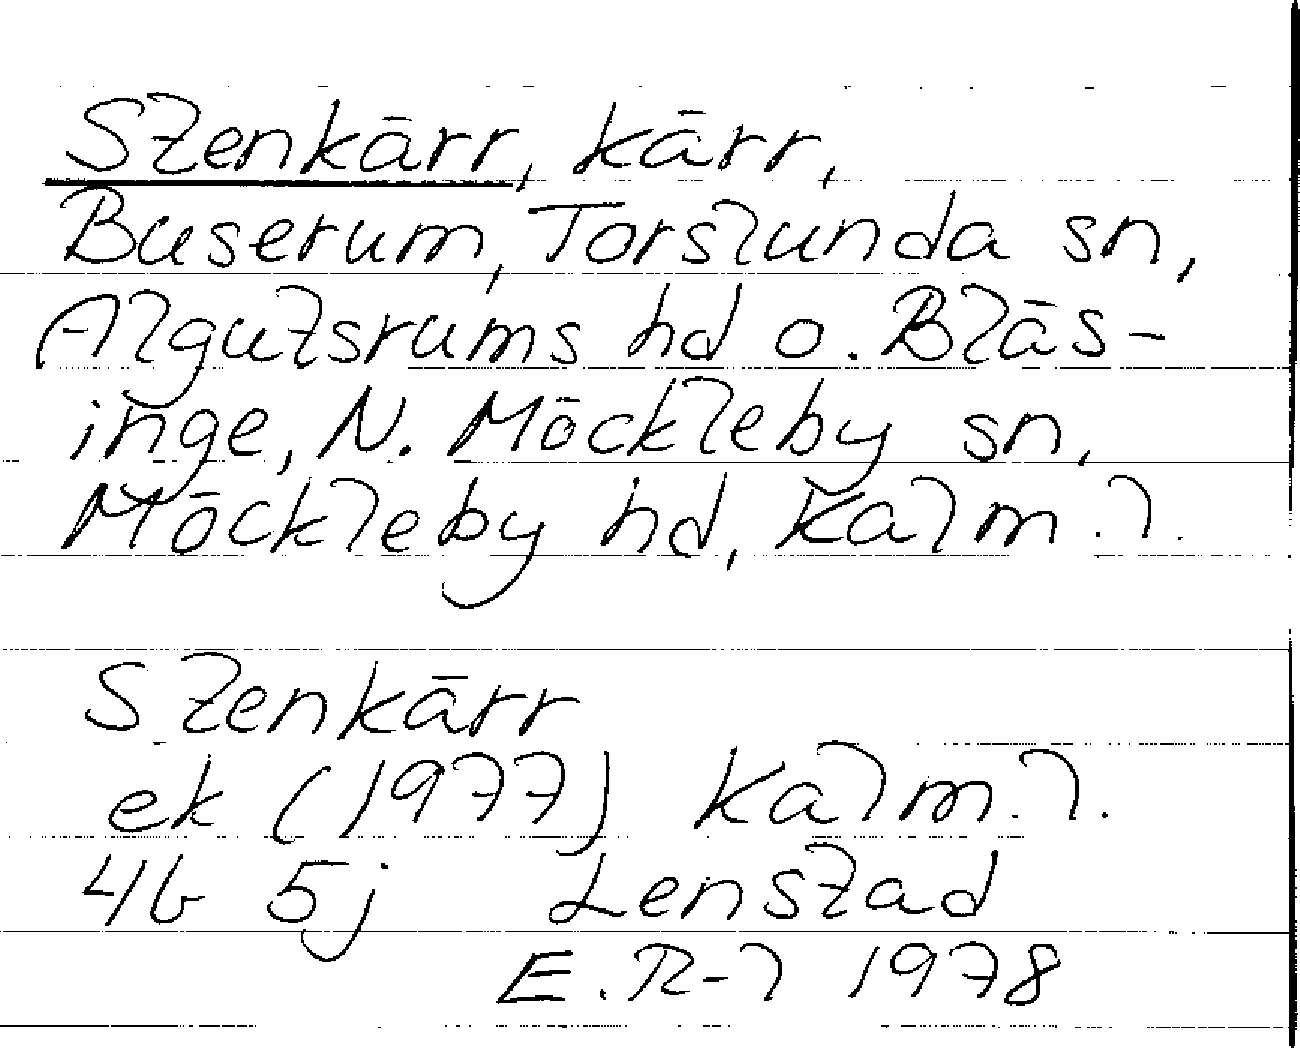 Stenkärr, kärr,
Buserum, Torslunda sn,
Algutsrums hd o. Bläs-
inge, N. Möckleby sn,
Möckleby hd, Kalm. l.
Stenkärr
ek (1977) Kalm. l.
4G 5j Lenstad
E. R-l 1978